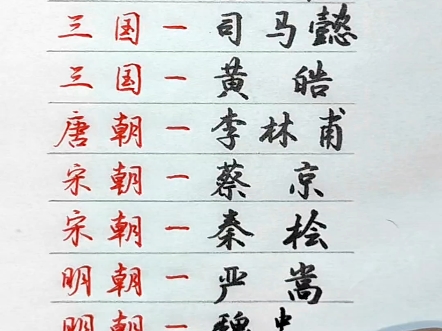 三国一司马懿
三国一黄皓
唐朝一李林甫
宋朝一蔡京
宋朝一秦桧
明朝一严嵩
明朝一魏忠